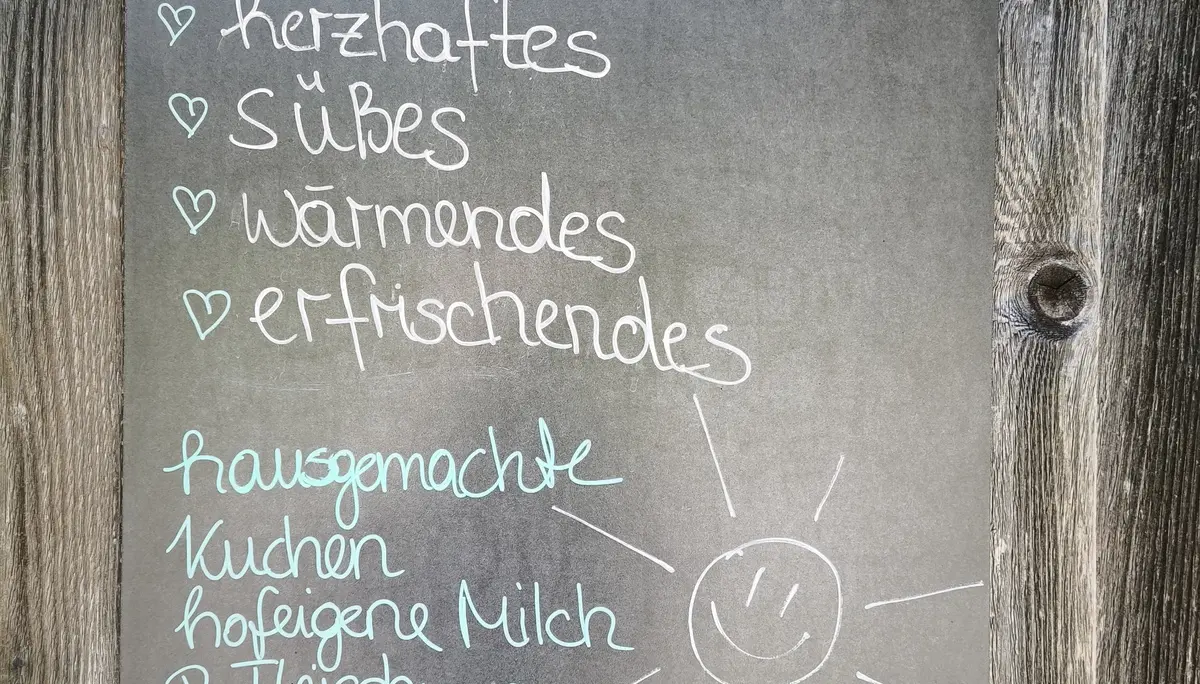 herzhaftes
süßes
wärmendes
erfrischendes
hausgemachte
Kuchen
hofeigene Milch